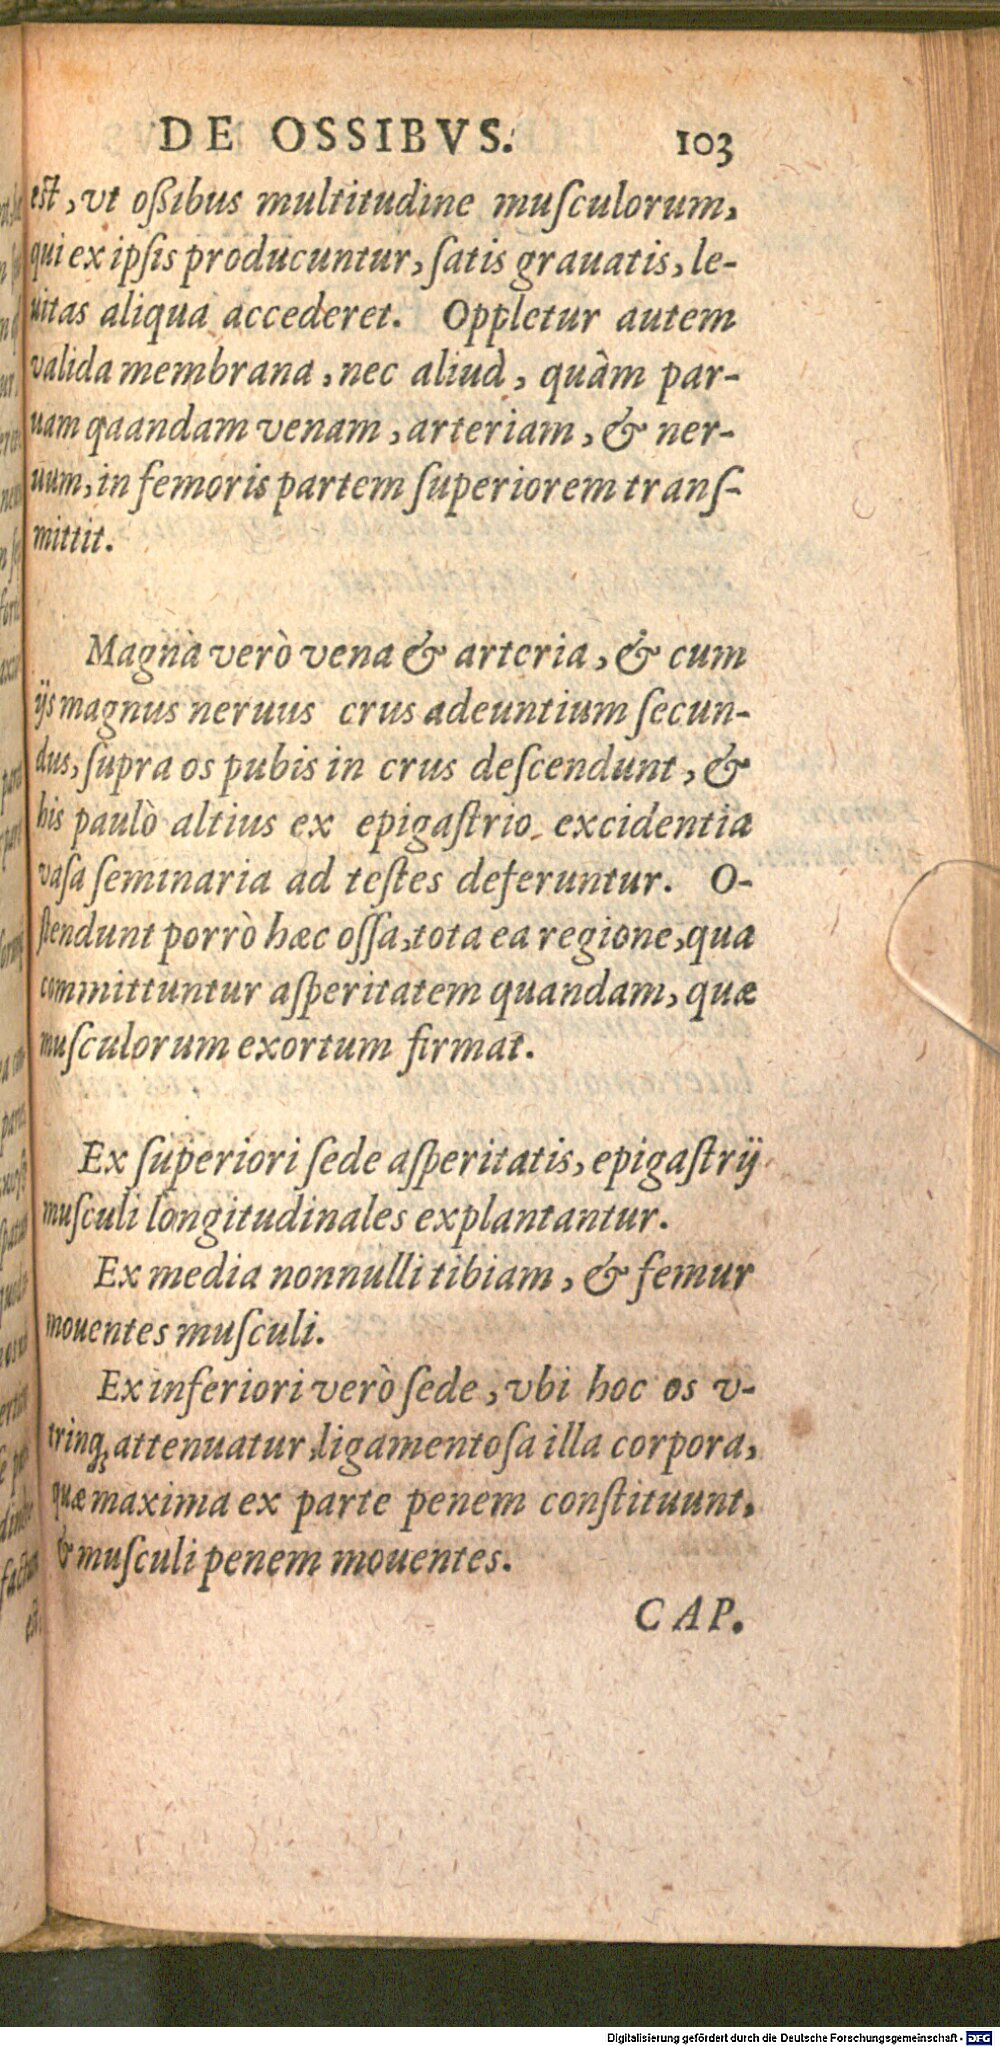 DE OSSIBVS. 103
est, vt oßibus multitudine muſculorum,
qui ex ipſis producuntur, ſatis grauatis, le-
uitas aliqua accederet. Oppletur autem
valida membrana, nec aliud, quàm par-
uam qaandam venam, arteriam, & ner-
uum, in femoris partem ſuperiorem tranſ-
mittit.
Magna verò vena & arteria, & cum
ijs magnus neruus crus adeuntium ſecun-
dus, ſupra os pubis in crus deſcendunt, &
his paulò altius ex epigaſtrio excidentia
vaſa ſeminaria ad teſtes deferuntur. O-
ſtendunt porrò hæc oſſa, tota ea regione, qua
committuntur aſperitatem quandam, quæ
muſculorum exortum firmat.
Ex ſuperiori ſede aſperitatis, epigaſtrij
muſculi longitudinales explantantur.
Ex media nonnulli tibiam, & femur
mouentes muſculi.
Ex inferiori verò ſede, vbi hoc os v-
trinq; attenuatur ligamentoſa illa corpora,
quæ maxima ex parte penem conſtituunt,
& muſculi penem mouentes.
CAP.
Digitalisierung gefördert durch die Deutsche Forschungsgemeinschaft - DFG